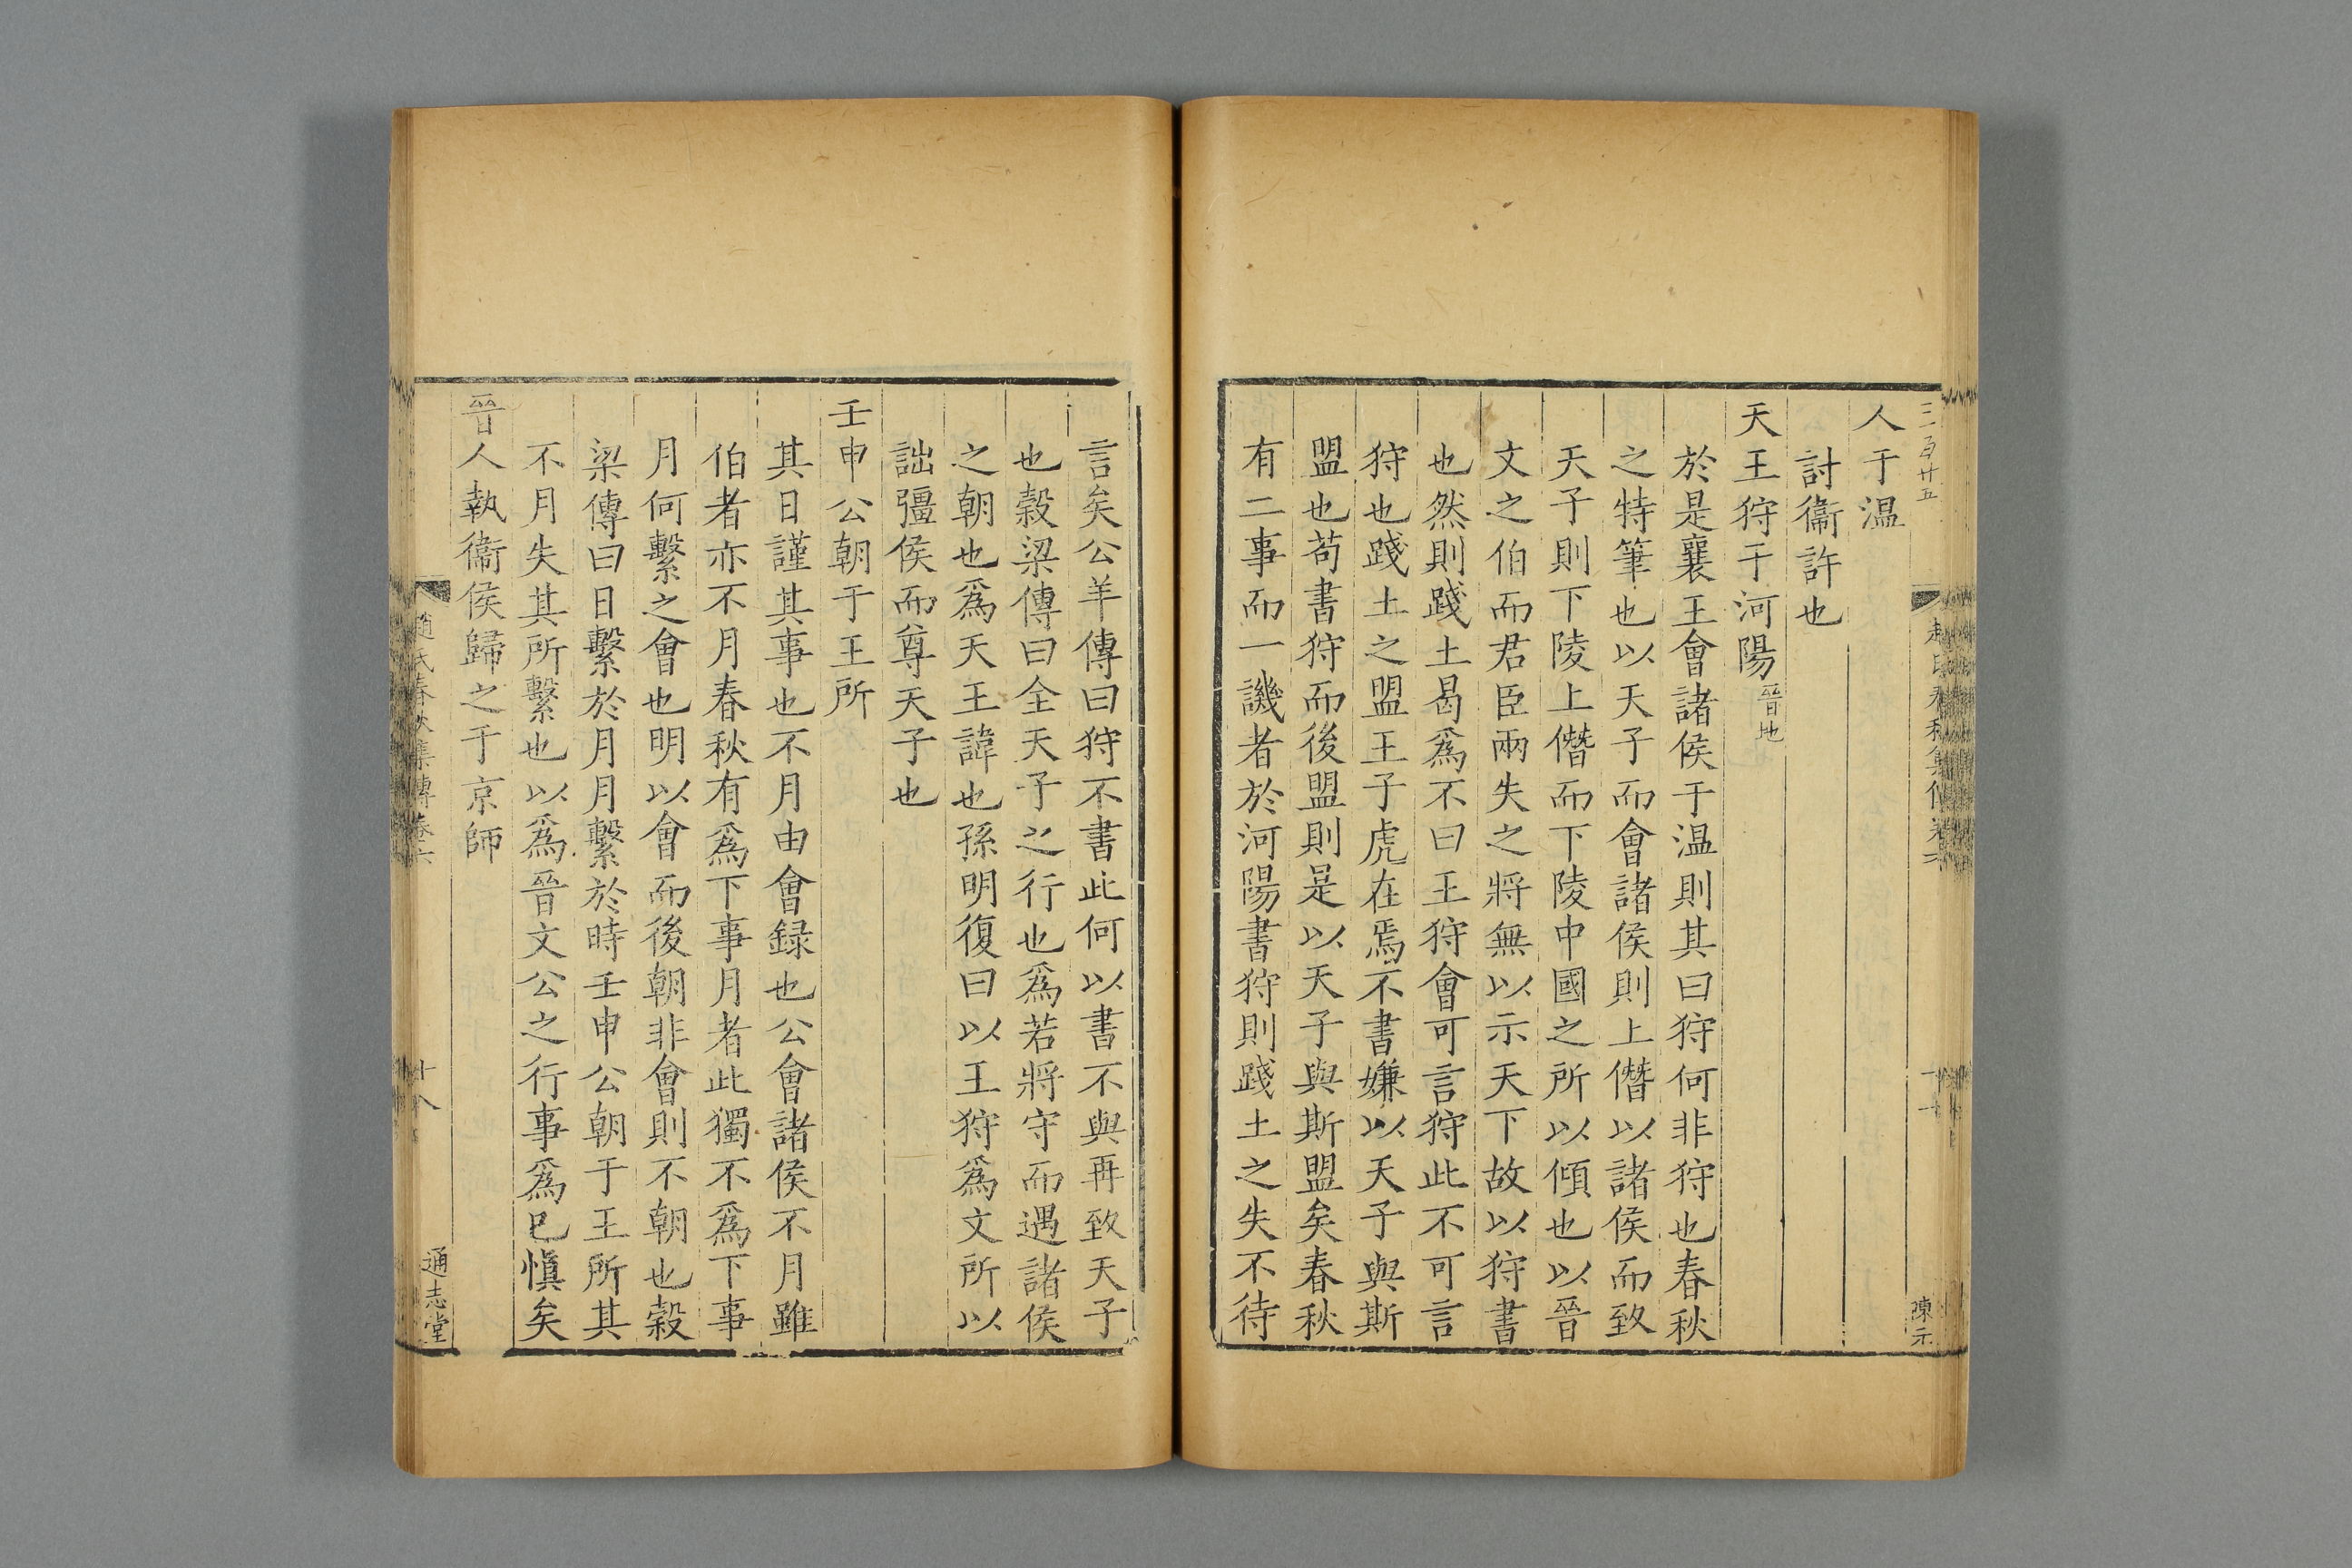 人于溫
討衞許也
天王狩于河陽晉地
於是襄王會諸侯于溫則其曰狩何非狩也春秋
之特筆也以天子而會諸侯則上僭以諸侯而致
天子則下陵上僭而下陵中國之所以傾也以晉
文之伯而君臣兩失之將無以示天下故以狩書
也然則踐土曷爲不曰王狩會可言狩此不可言
狩也踐土之盟王子虎在焉不書嫌以天子與斯
盟也苟書狩而後盟則是以天子與斯盟矣春秋
有二事而一譏者於河陽書狩則踐土之失不待
三百廿五
陳元
言矣公羊傳曰狩不書此何以書不與再致天子
也穀梁傳曰全天子之行也爲若將守而遇諸侯
之朝也爲天王諱也孫明復曰以王狩爲文所以
詘彊侯而尊天子也
壬申公朝于王所
其日謹其事也不月由會録也公會諸侯不月雖
伯者亦不月春秋有爲下事月者此獨不爲下事
月何繫之會也明以會而後朝非會則不朝也穀
梁傳曰日繫於月月繫於時壬申公朝于王所其
不月失其所繫也以爲晉文公之行事爲已愼矣
晉人執衞侯歸之于京師
趙氏春秋集傳卷六
十八
通志堂